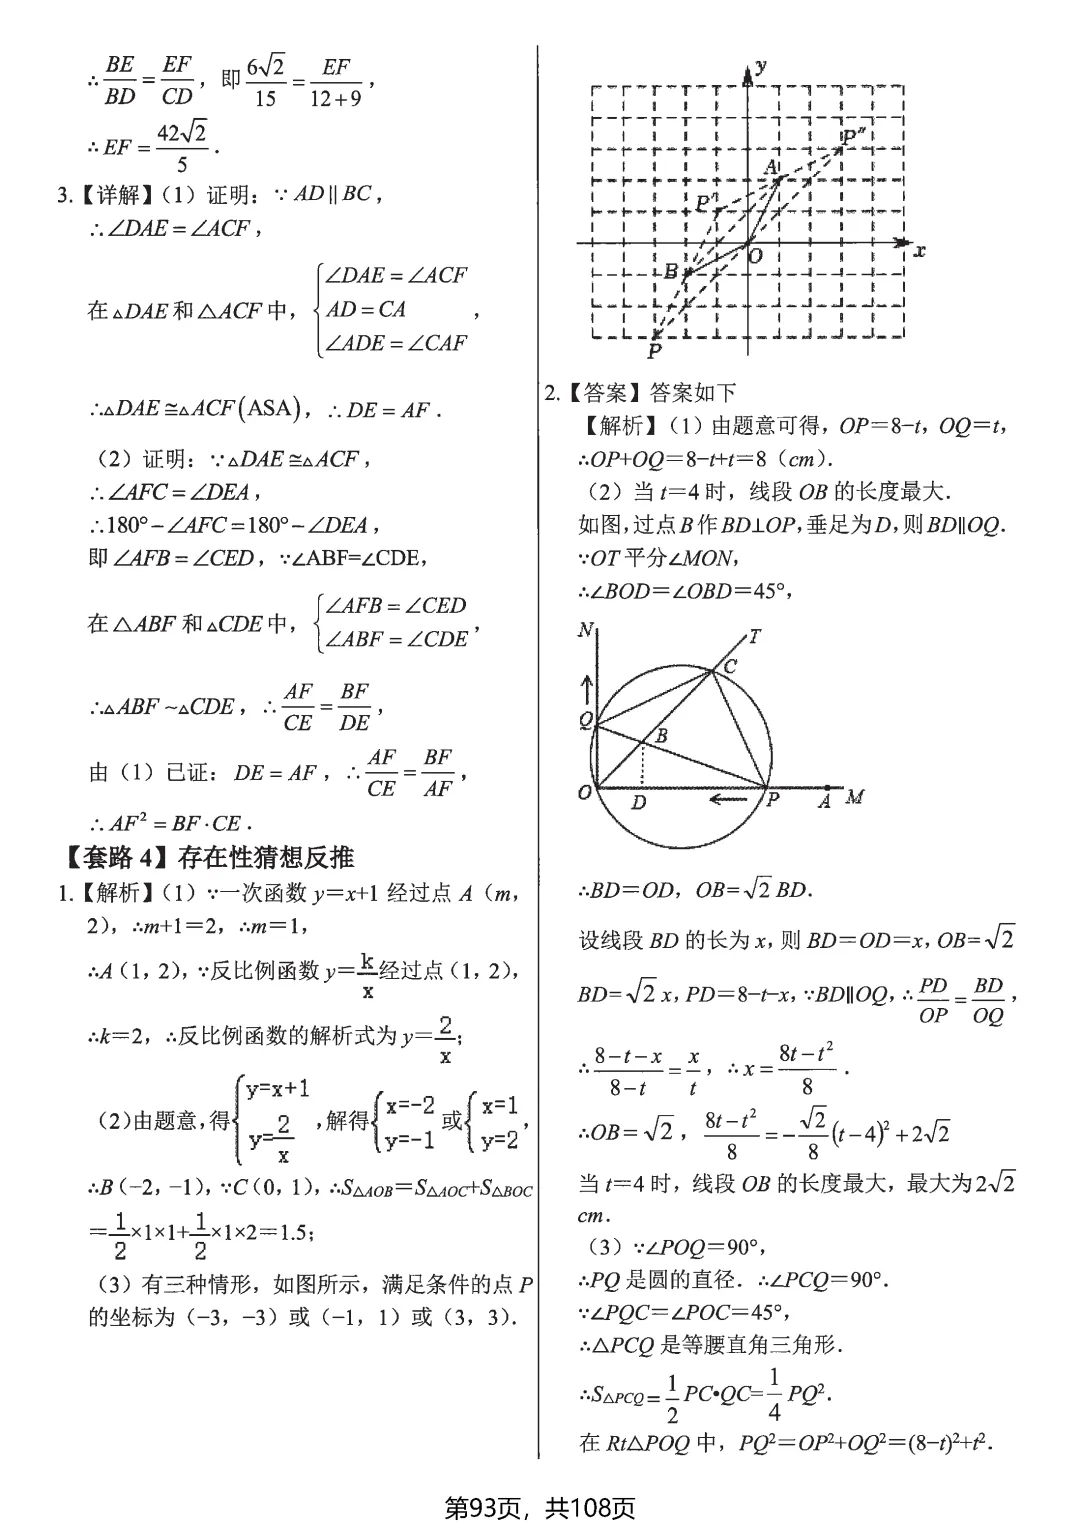 ∴BE/BD=EF/CD，即6√2/15=EF/(12+9)，
∴EF=42√2/5.
3.【详解】（1）证明：∵AD∥BC，
∴∠DAE=∠ACF，
在△DAE和△ACF中，{∠DAE=∠ACF AD=CA ∠ADE=∠CAF，
∴△DAE≌△ACF(ASA)，∴DE=AF.
（2）证明：∵△DAE≌△ACF，
∴∠AFC=∠DEA，
∴180°−∠AFC=180°−∠DEA，
即∠AFB=∠CED，∵∠ABF=∠CDE，
在△ABF和△CDE中，{∠AFB=∠CED ∠ABF=∠CDE，
∴△ABF~△CDE，∴AF/CE=BF/DE，
由（1）已证：DE=AF，∴AF/CE=BF/AF，
∴AF²=BF·CE.
【套路4】存在性猜想反推
1.【解析】（1）∵一次函数y=x+1经过点A（m，
2），∴m+1=2，∴m=1，
∴A（1，2），∵反比例函数y=k/x经过点（1，2），
∴k=2，∴反比例函数的解析式为y=2/x；
（2）由题意，得{y=x+1 y=2/x，解得{x=-2 y=-1或{x=1 y=2，
∴B（−2，−1），∵C（0，1），∴S△AOB=S△AOC+S△BOC
=1/2×1×1+1/2×1×2=1.5；
（3）有三种情形，如图所示，满足条件的点P
的坐标为（−3，−3）或（−1，1）或（3，3）.
y
P″
A
P′
O
x
B
P
2.【答案】答案如下
【解析】（1）由题意可得，OP=8−t，OQ=t，
∴OP+OQ=8−t+t=8（cm）.
（2）当t=4时，线段OB的长度最大.
如图，过点B作BD⊥OP，垂足为D，则BD∥OQ.
∵OT平分∠MON，
∴∠BOD=∠OBD=45°，
N
T
C
Q
B
O
D
P
A
M
∴BD=OD，OB=√2BD.
设线段BD的长为x，则BD=OD=x，OB=√2
BD=√2x，PD=8−t−x，∵BD∥OQ，∴PD/OP=BD/OQ，
∴(8−t−x)/(8−t)=x/t，∴x=(8t−t²)/8.
∴OB=√2，(8t−t²)/8=−√2/8(t−4)²+2√2
当t=4时，线段OB的长度最大，最大为2√2
cm.
（3）∵∠POQ=90°，
∴PQ是圆的直径.∴∠PCQ=90°.
∵∠PQC=∠POC=45°，
∴△PCQ是等腰直角三角形.
∴S△PCQ=1/2PC•QC=1/4PQ².
在Rt△POQ中，PQ²=OP²+OQ²=(8−t)²+t².
第93页，共108页